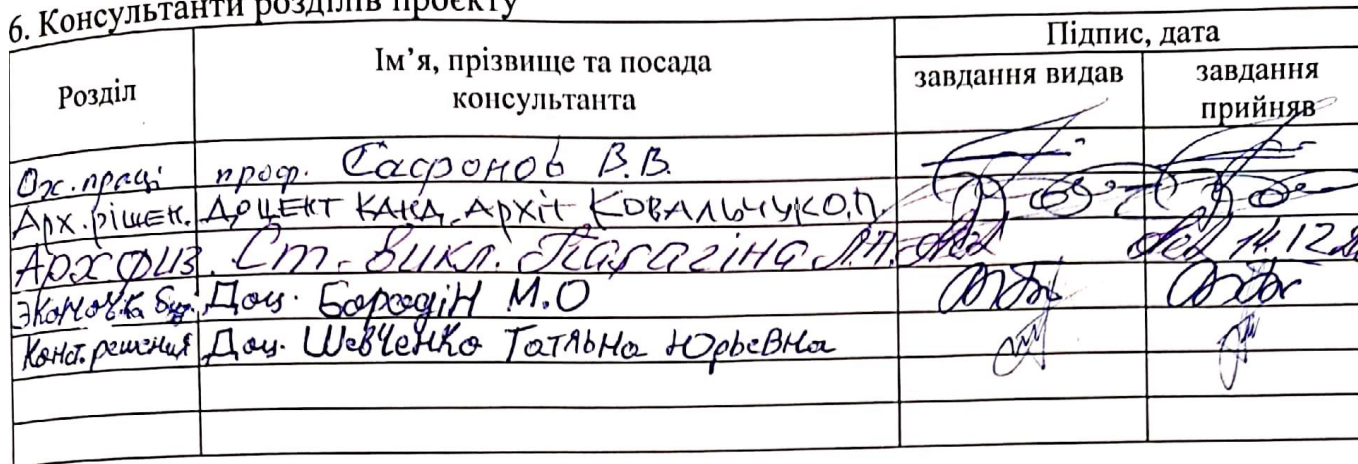 6. Консультанти розділів проєкту
Розділ
Ім’я, прізвище та посада
консультанта
Підпис, дата
завдання видав
завдання
прийняв
Ох. праці проф. Сафронов В.В.
Арх. рішен. Доцент канд. архіт Ковальчук О.П
Арх физ. Ст. викл. Л.П. 14.12
Доц. Бородін М.О
Конст. решения Доц. Шевченко Татьяна Юрьевна